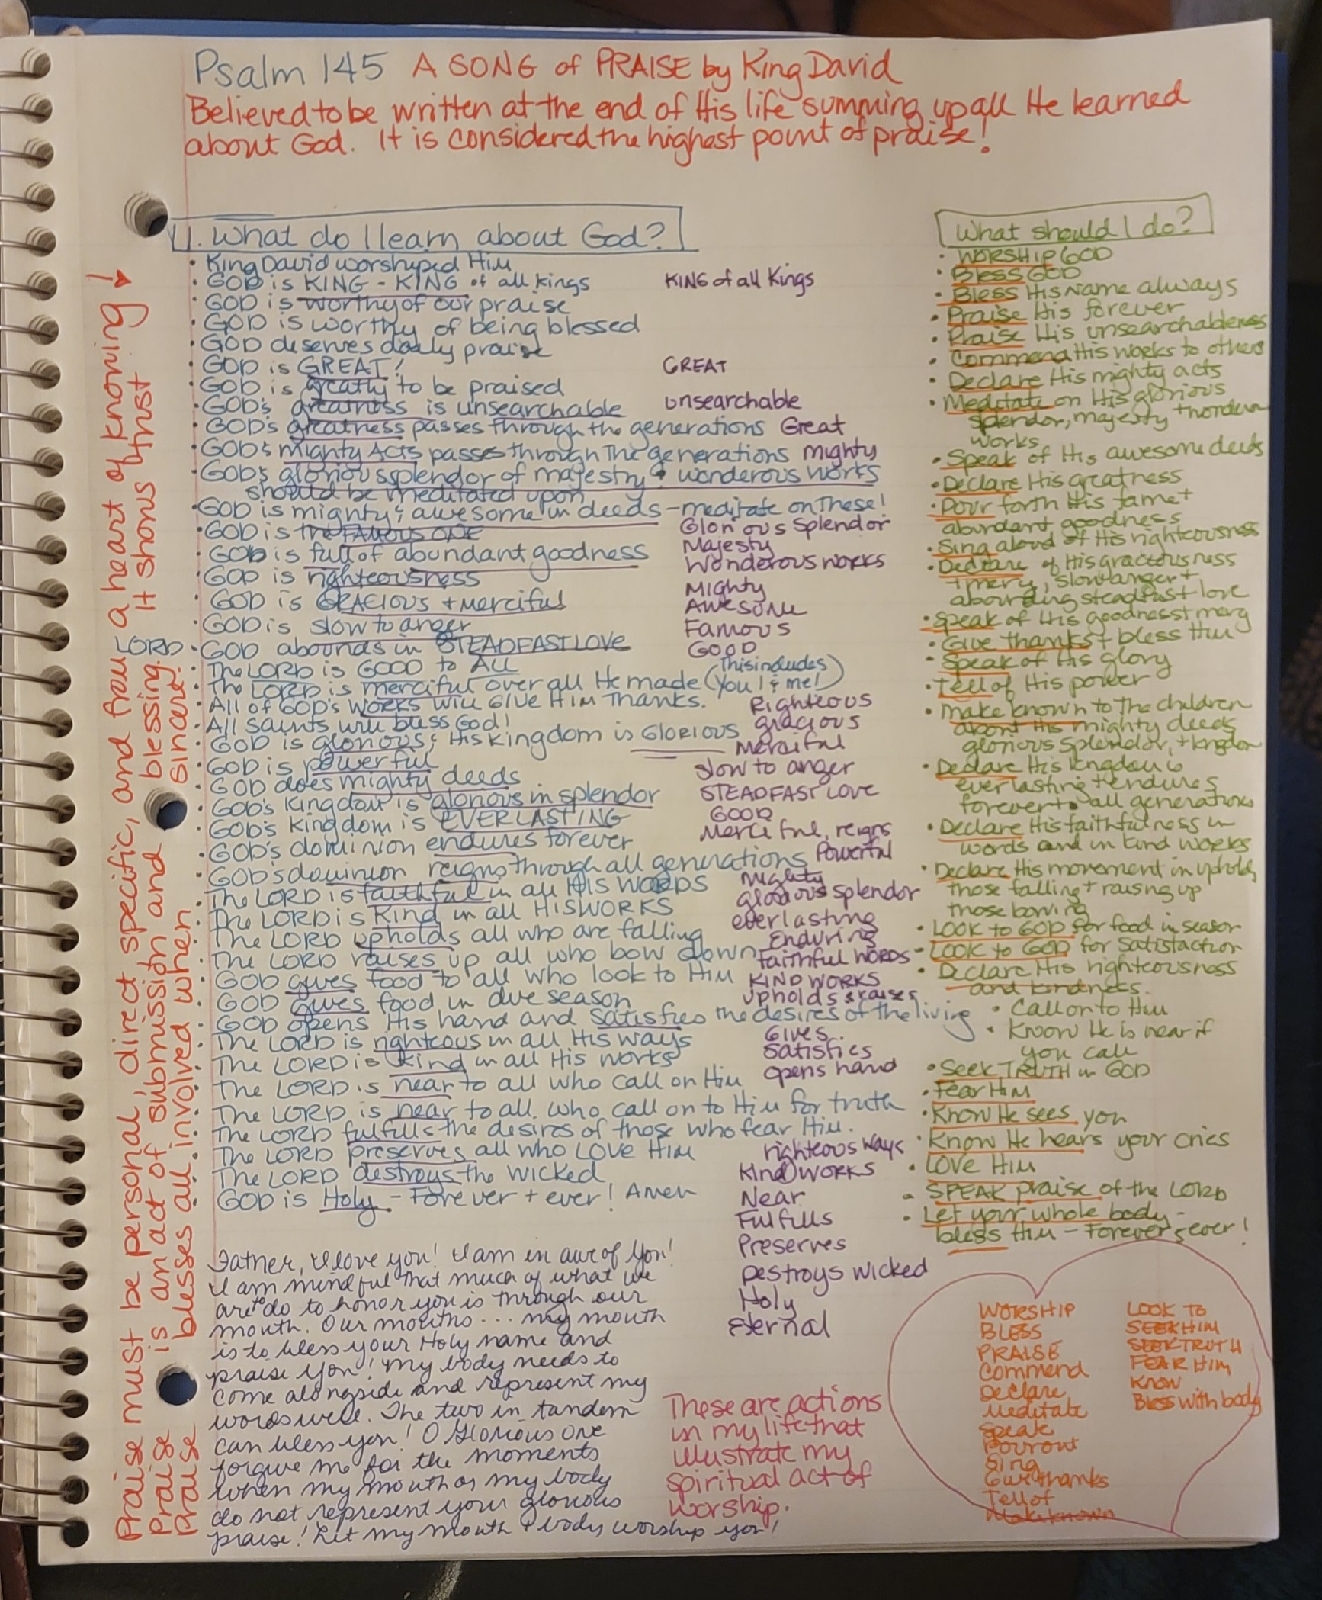 Psalm 145 A SONG of PRAISE by King David
Believed to be written at the end of His life summing up all He learned
about God. It is considered the highest point of praise!
1. What do I learn about God?
• King David worshiped Him
• GOD is KING - KING of all kings
• GOD is worthy of our praise
• GOD is worthy of being blessed
• GOD deserves daily praise
• GOD is GREAT!
• GOD is greatly to be praised
• GOD's greatness is unsearchable
• GOD's greatness passes through the generations
• GOD's mighty Acts passes through The generations
• GOD's glorious splendor of majesty + wonderous works
should be meditated upon
• GOD is mighty & awesome in deeds - meditate on These!
• GOD is The FAMOUS ONE
• GOD is full of abundant goodness
• GOD is righteousness
• GOD is GRACIOUS + merciful
• GOD is slow to anger
LORD • GOD abounds in STEADFAST LOVE
• The LORD is GOOD to ALL
• The LORD is merciful over all He made (This includes
you! & me!)
• All of GOD's works will GIVE HIM THANKS.
• All Saints will bless God!
• GOD is glorious & His Kingdom is GLORIOUS
• GOD is powerful
• GOD does mighty deeds
• GOD's Kingdom is glorious in splendor
• GOD's Kingdom is EVERLASTING
• GOD's dominion endures forever
• GOD's dominion reigns through all generations
• The LORD is faithful in all HIS WORDS
• The LORD is Kind in all HIS WORKS
• The LORD upholds all who are falling
• The LORD raises up all who bow down
• GOD gives food to all who look to Him
• GOD gives food in due season
• GOD opens His hand and Satisfies the desires of the living
• The LORD is righteous in all His ways
• The LORD is Kind in all His works
• The LORD is near to all who call on Him
• The LORD is near to all who call on to Him for truth
• The LORD fulfulls the desires of those who fear Him.
• The LORD preserves all who LOVE Him
• The LORD destroys the wicked
• GOD is Holy - Forever + ever! Amen
KING of all Kings
GREAT
unsearchable
Great
mighty
Glorious Splendor
Majesty
Wonderous works
Mighty
Awesome
Famous
GOOD
Righteous
gracious
Merciful
slow to anger
STEADFAST LOVE
GOOD
Merciful, reigns
Powerful
Mighty
glorious splendor
everlasting
Enduring
Faithful WORDS
KIND WORKS
upholds & raises
Gives
Satisfies
opens hand
righteous ways
Kind WORKS
Near
Fulfills
Preserves
Destroys wicked
Holy
Eternal
What should I do?
• WORSHIP GOD
• BLESS GOD
• Bless His Name always
• Praise His forever
• Praise His unsearchableness
• Commend His works to others
• Declare His mighty acts
• Meditate on His glorious
splendor, majesty + wonderous
works
• Speak of His awesome deeds
• Declare His greatness
• Pour forth His fame +
abundant goodness
• Sing aloud of His righteousness
• Declare of His graciousness
+ mercy, slow anger +
abounding steadfast love
• Speak of His goodness + mercy
• Give thanks + bless Him
• Speak of His glory
• Tell of His power
• make known to the children
about His mighty deeds
glorious splendor, + kingdom
• Declare His kingdom is
everlasting + endures
forever to all generations
• Declare His faithfulness in
words and in kind works
• Declare His movement in upholding
those falling + raising up
those bowing
• LOOK to GOD for food in season
• Look to GOD for satisfaction
• Declare His righteousness
and kindness.
• Call on to Him
• Know He is near if
you call
• Seek TRUTH in GOD
• Fear Him
• Know He sees you
• Know He hears your cries
• LOVE Him
• SPEAK praise of the LORD
• Let your whole body -
bless Him - Forever & ever!
Father, I love you! I am in awe of You!
I am mindful that much of what we
are to do to honor you is through our
mouth. Our mouths... my mouth
is to bless your Holy name and
praise You! My body needs to
come alongside and represent my
words well. The two in tandem
can bless you! O Glorious One
forgive me for the moments
when my mouth or my body
do not represent your glorious
praise! Let my mouth + body worship you!
These are actions
in my life that
illustrate my
spiritual act of
worship.
WORSHIP
BLESS
PRAISE
Commend
Declare
Meditate
Speak
Pour out
Sing
Give thanks
Tell of
Make known
LOOK TO
SEEK HIM
SEEK TRUTH
FEAR HIM
KNOW
Bless with body
Praise must be personal, direct specific, and from a heart of knowing!
Praise is an act of submission and blessing. It shows trust
Praise blesses all involved when sincere!